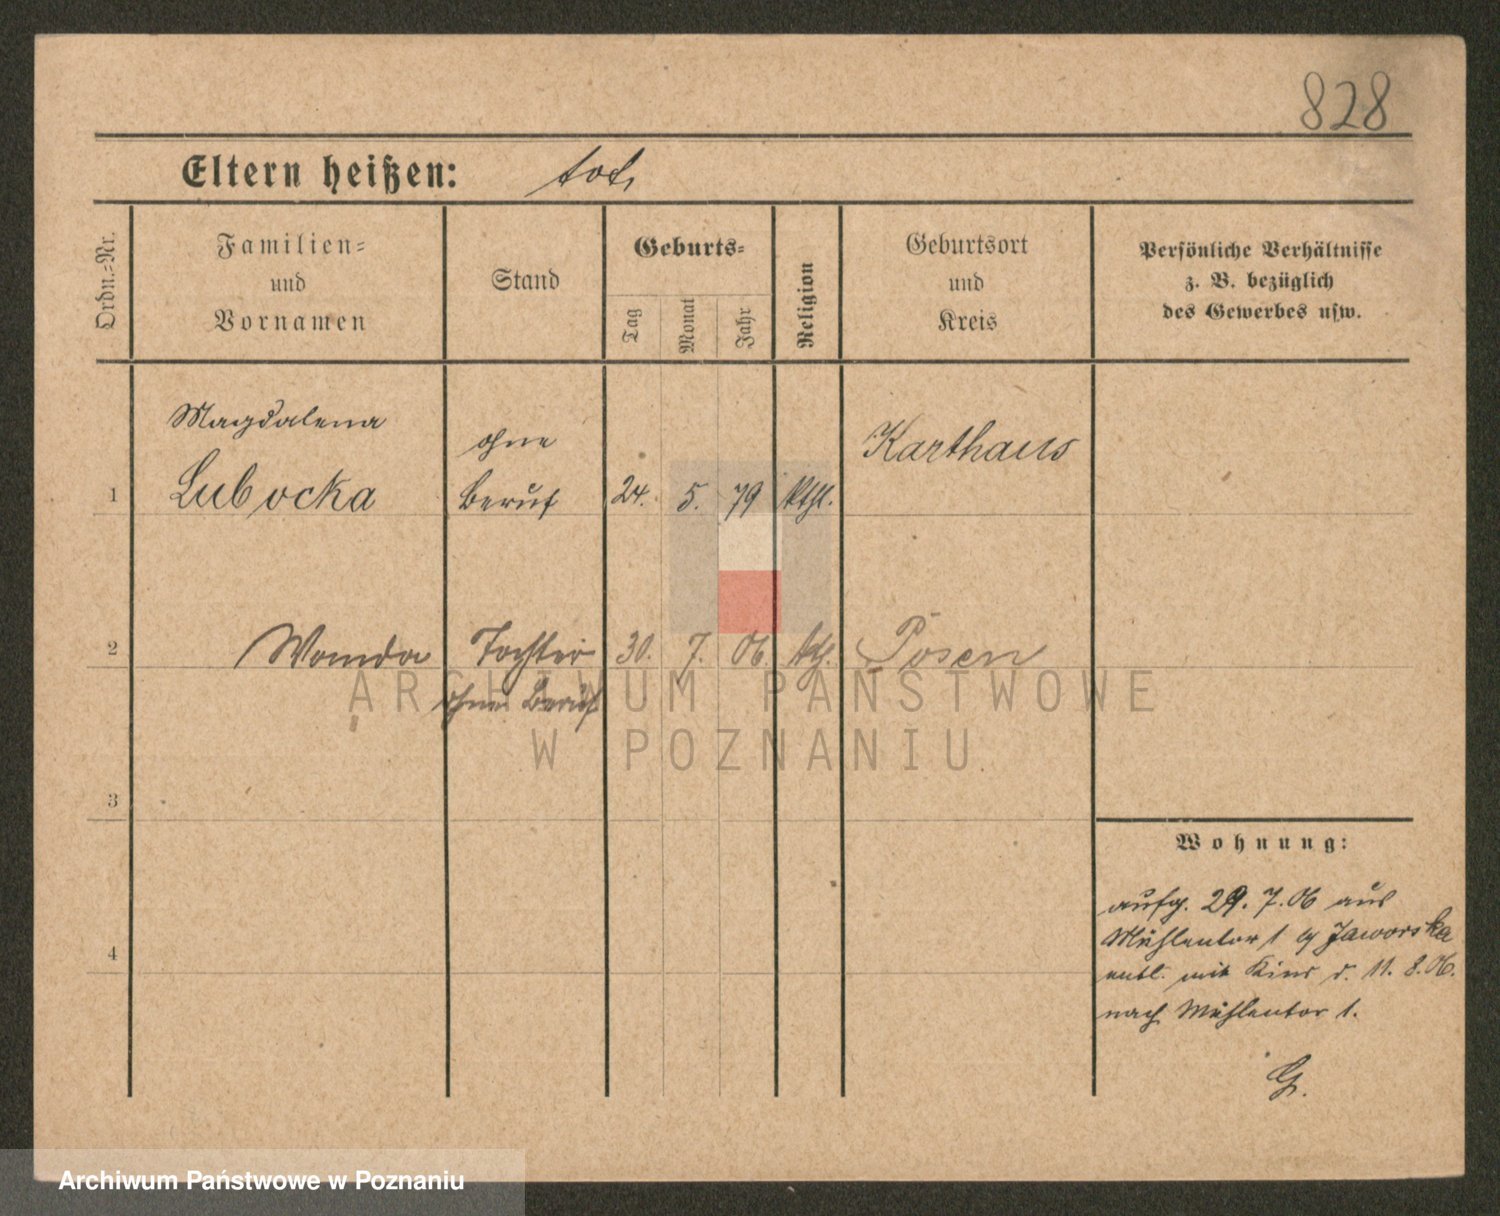 828
Eltern heißen: tot,
Ordn.-Nr.
Familien-
und
Vornamen
Stand
Geburts-
Tag
Monat
Jahr
Religion
Geburtsort
und
Kreis
Persönliche Verhältnisse
z. B. bezüglich
des Gewerbes usw.
Magdalena
1 Lubocka
ohne
Beruf
24. 5. 79 kthl.
Karthaus
2 Wanda Tochter 30. 7. 06. kth. Posen
ohne Beruf
ARCHIWUM PAŃSTWOWE
W POZNANIU
3
Wohnung:
aufg. 29. 7. 06 aus
Mühlentor 1 Jaworska
4
entl. mit Kind d. 11. 8. 06.
nach Mühlentor 1.
G.
Archiwum Państwowe w Poznaniu